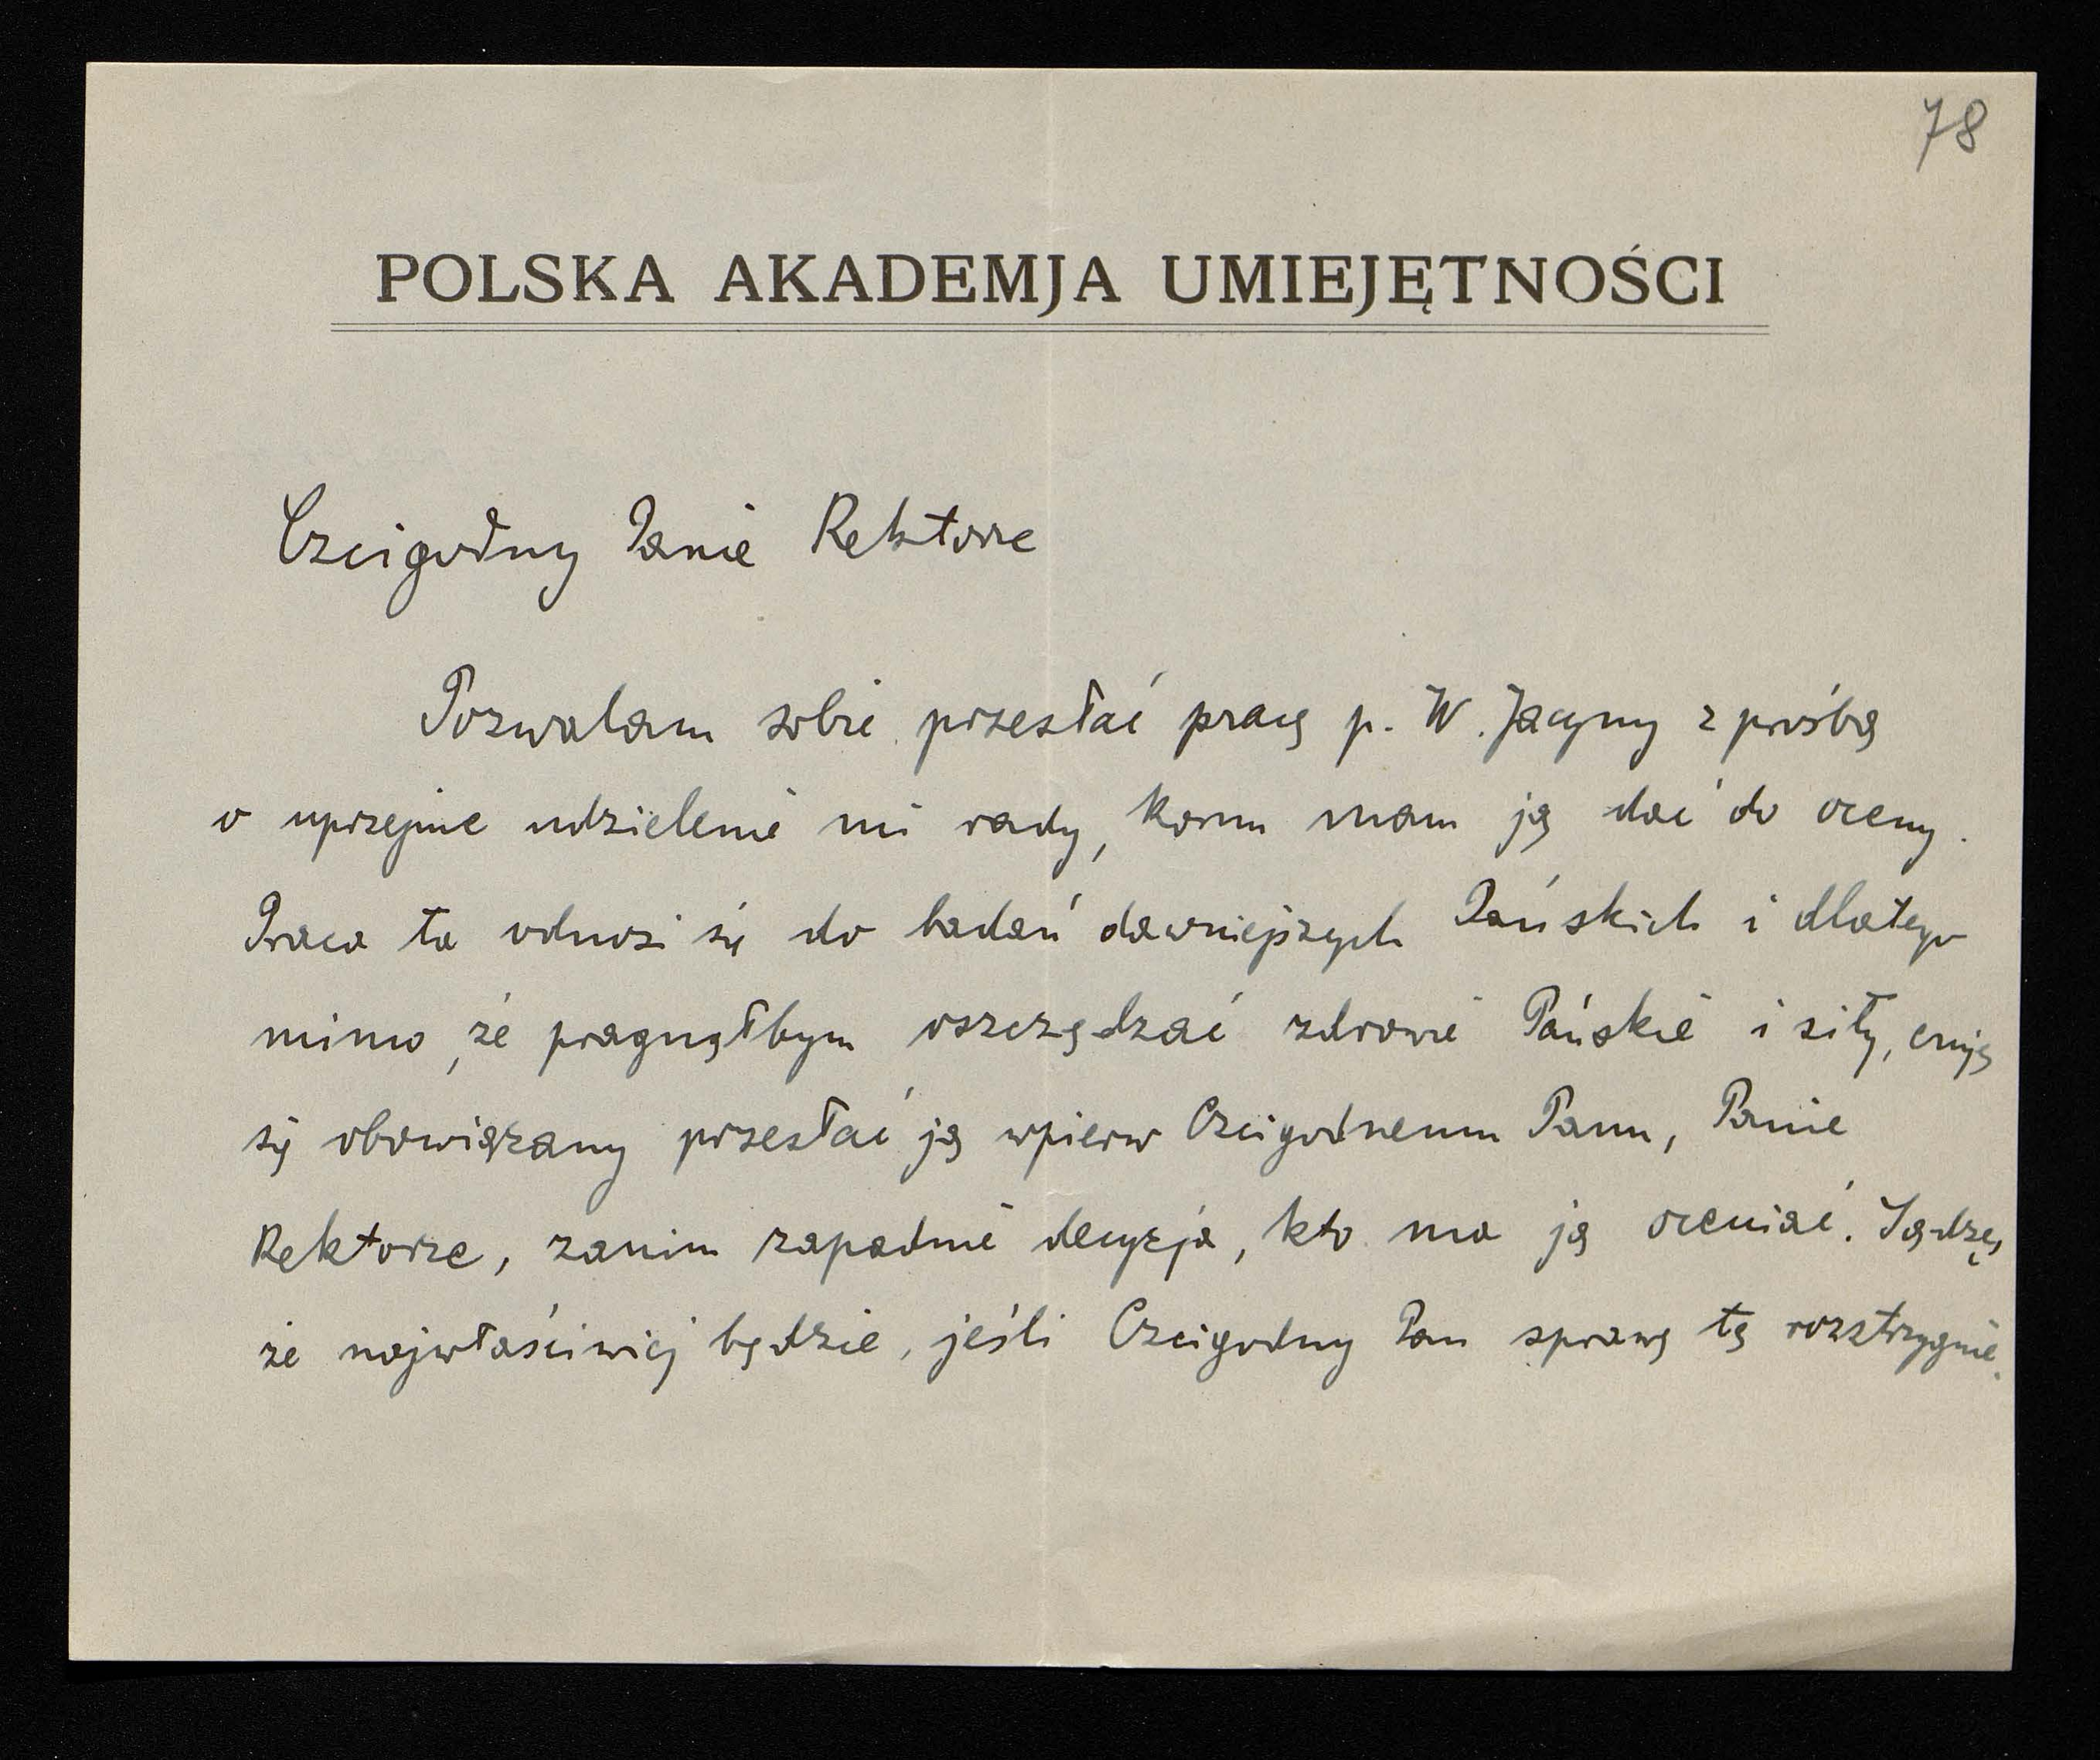 78
POLSKA AKADEMJA UMIEJĘTNOŚCI
Czcigodny Panie Rektorze
Pozwalam sobie przesłać pracę p. W. Jacyny z prośbą
o uprzejme udzielenie mi rady, komu mam ją dać do oceny.
Praca ta odnosi się do badań dawniejszych Pańskich i dlatego
mimo, że pragnąłbym oszczędzać zdrowie Pańskie i siły, czuję
się obowiązany przesłać ją wpierw Czcigodnemu Panu, Panie
Rektorze, zanim zapadnie decyzja, kto ma ją oceniać. Sądzę,
że najwłaściwiej będzie, jeśli Czcigodny Pan sprawę tę rozstrzygnie.